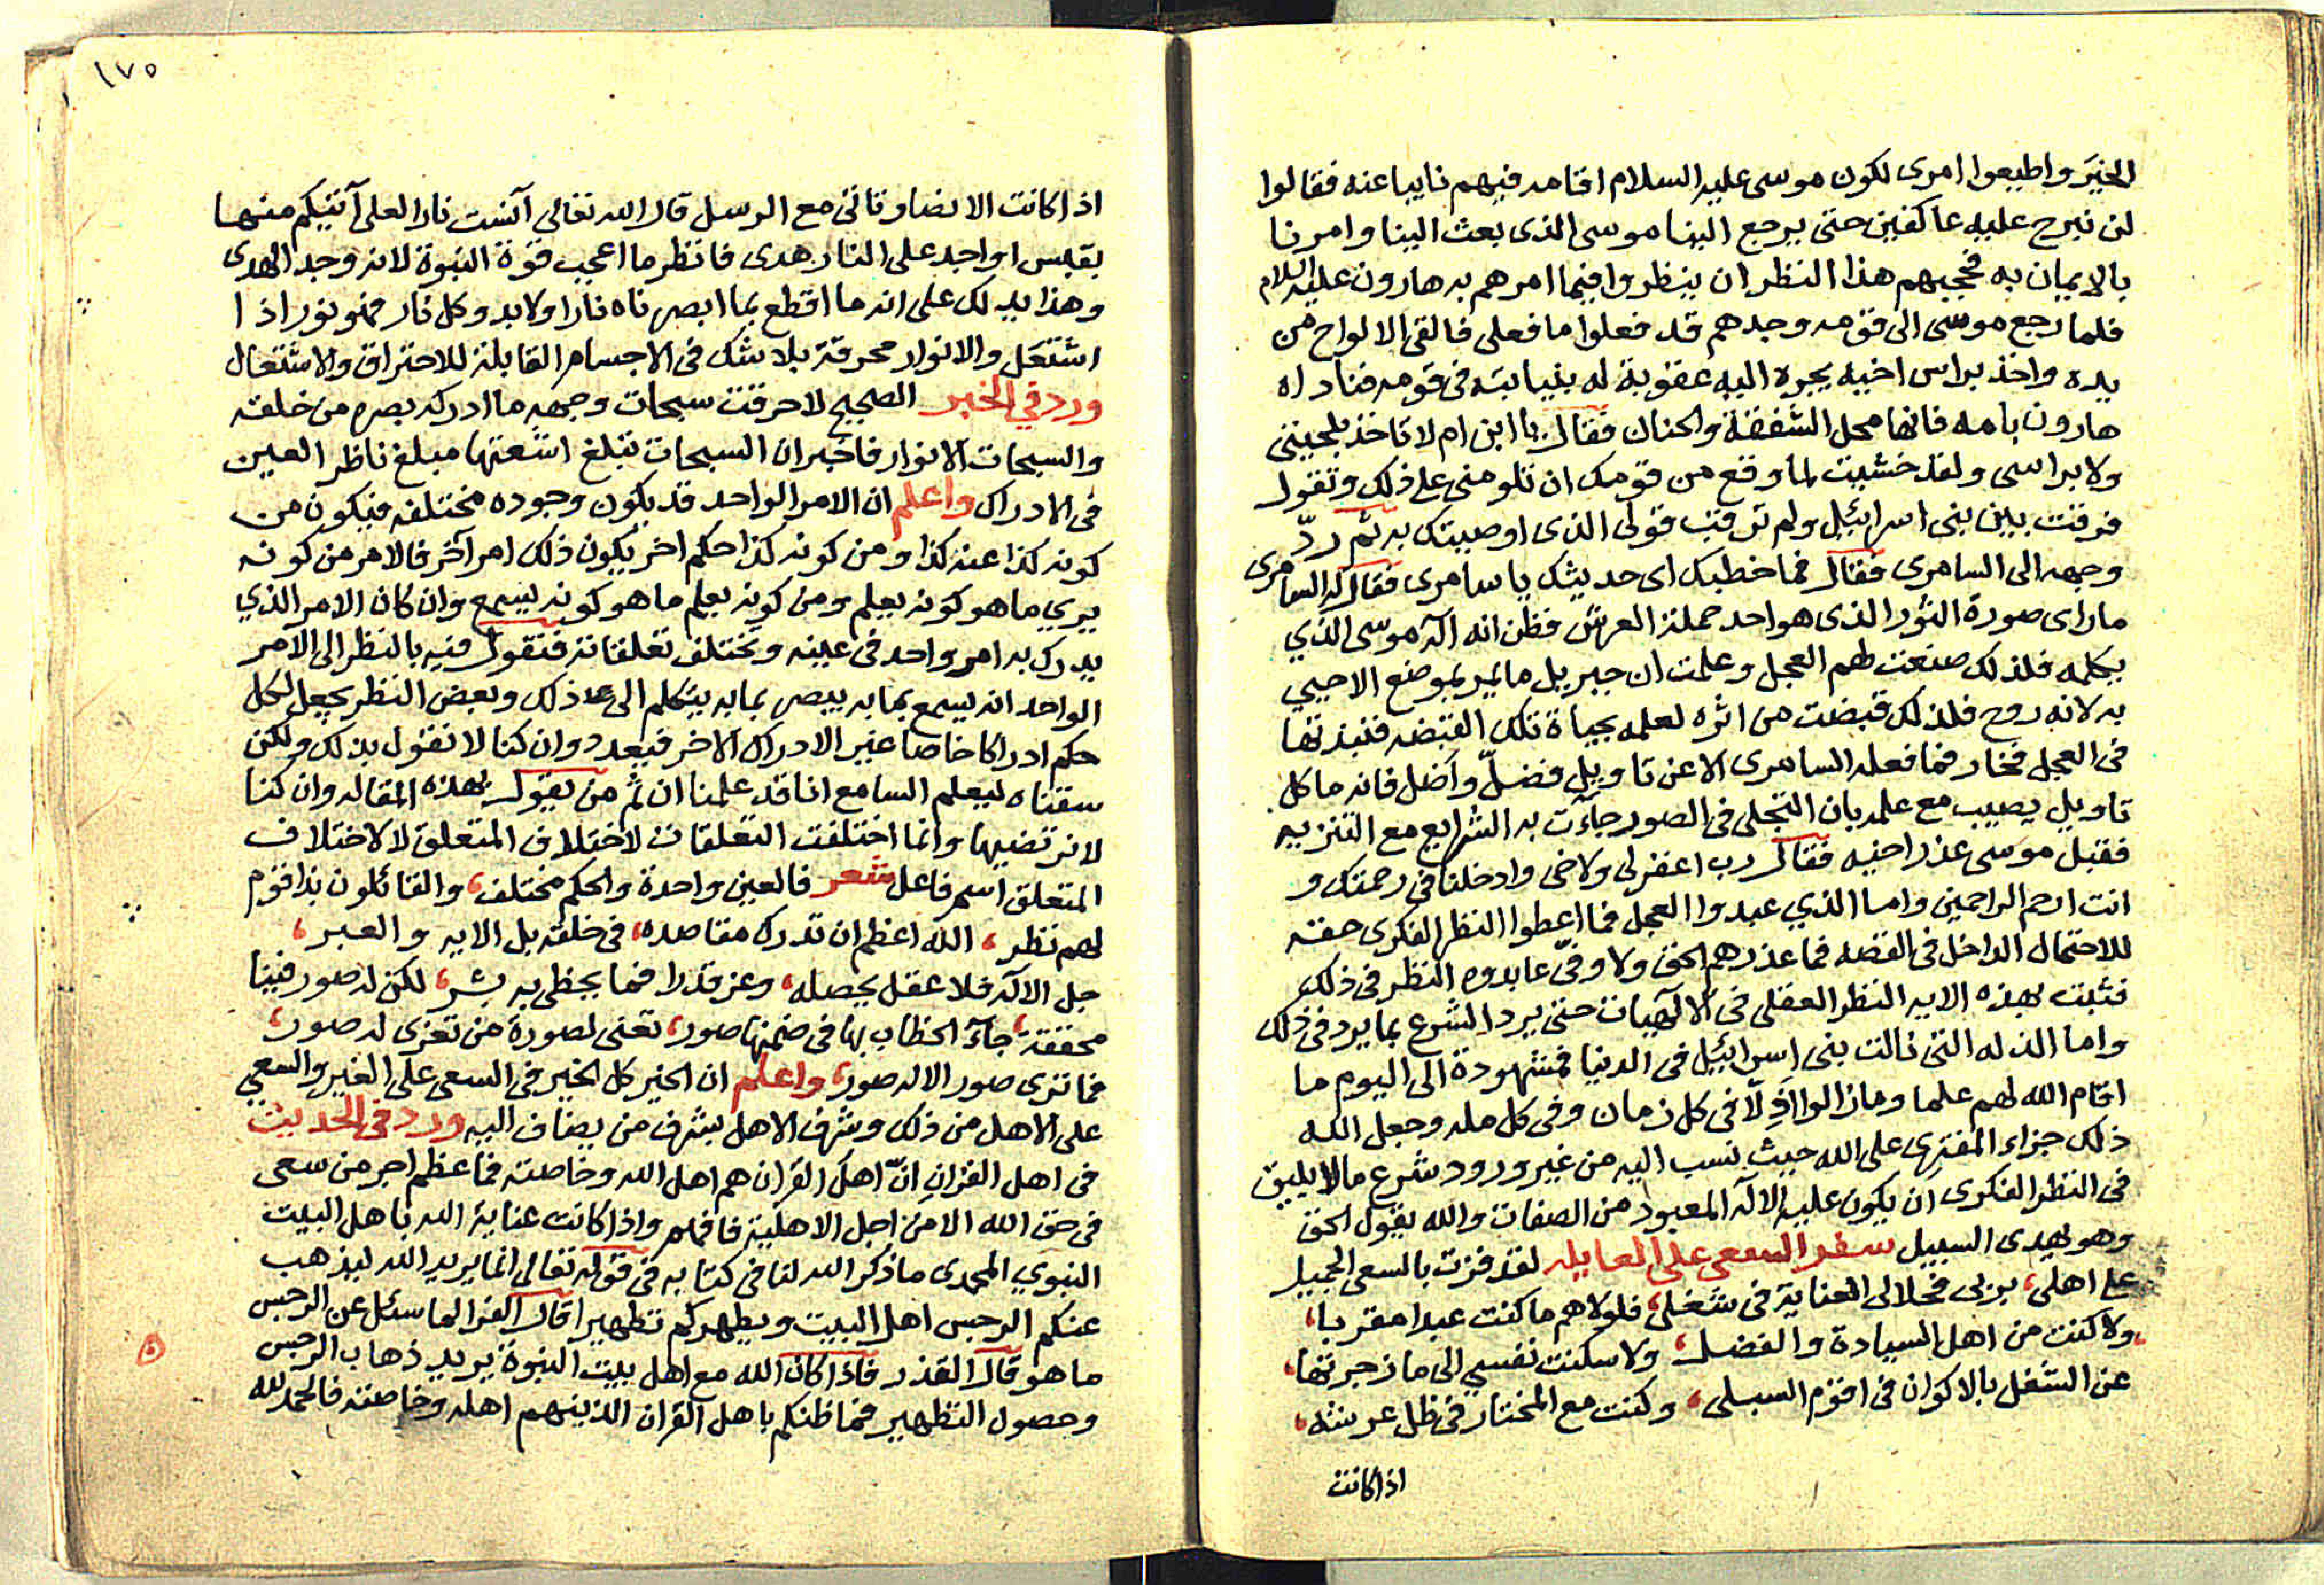 الخير واطيعوا امرى لكون موسى عليه السلام اقامه فيهم نايبا عنه فقالوا
لن نبرح عليه عاكفين حتى يرجع الينا موسى الذى بعث الينا وامرنا
بالايمان به فحجبهم هذا النظر ان ينظروا فيما امرهم به هارون عليه السلام
فلما رجع موسى الى قومه وجدهم قد فعلوا ما فعلى فالقى الالواح من
يده واخذ براس اخيه يجره اليه عقوبة له بنيابته فى قومه فناداه
هارون بامه فانها محل الشفقة والحنان فقال يا ابن ام لا تاخذ بلحيتى
ولا براسى ولقد خشيت لما وقع من قومك ان تلومنى على ذلك وتقول
فرقت بين بنى اسرائيل ولم ترقب قولى الذى اوصيتك به ثم ردّ
وجهه الى السامرى فقال فما خطبك اى حديثك يا سامرى فقال له السامرى
ما راى صورة الثور الذى هو احد حملة العرش فظن انه اله موسى الذي
يكلمه فلذلك صنعت لهم العجل وعلمت ان جبريل ما يمر بموضع الا حيي
به لانه روح فلذلك قبضت من اثره لعلمه بحياة تلك القبضه فنبذتها
فى العجل فخار فما فعله السامرى الا عن تاويل فضلّ واضل فانه ما كل
تاويل يصيب مع علمه بان التجلى فى الصور جاءت به الشرايع مع التنزيه
فقبل موسى عذر اخيه فقال رب اغفر لى ولاخى وادخلنا فى رحمتك و
انت ارحم الراحمين واما الذي عبدوا العجل فما اعطوا النظر الفكرى حقه
للاحتمال الداخل فى القصه فما عذرهم الحق ولا وفى عابدوه النظر فى ذلك
فثبت بهذه الايه النظر العقلى فى الالهيات حتى يرد الشرع بما يرد فى ذلك
واما الذله التى نالت بنى اسرائيل فى الدنيا فمشهودة الى اليوم ما
اقام الله لهم علما وما زالوا اذلّا فى كل زمان وفى كل مله وجعل الله
ذلك جزاء المفترى على الله حيث نسب اليه من غير ورود شرع ما لا يليق
فى النظر الفكرى ان يكون عليه الاله المعبود من الصفات والله يقول الحق
وهو يهدى السبيل سفر السعى على العايله لقد فزت بالسعى الجميل
على اهلى، بربى فحلالى العناية فى شغلى، فلولاهم ما كنت عبدا مقربا،
ولا كنت من اهل السيادة والفضل، ولا سكنت نفسي الى ما زجرتها،
عن الشغل بالاكوان فى اقوم السبلى، وكنت مع المختار فى ظل عرشه،
اذا كانت
١٧٥
اذا كانت الانصاوقاتى مع الرسل قال الله تعالى آنست نارا لعلى آتيكم منها
بقبس او اجد على النار هدى فانظر ما اعجب قوة النبوة لانه وجد الهدى
وهذا يدلك على انه ما اقطع بما ابصرناه نارا ولا بد وكل نار فهو نور اذا
اشتعل والانوار محرقة بلا شك فى الاجسام القابلة للاحتراق والاشتعال
ورد في الخبر الصحيح لاحرقت سبحات وجهه ما ادركه بصره من خلقه
والسبحات الانوار فاخبر ان السبحات تبلغ اشعتها مبلغ ناظر العين
فى الادراك واعلم ان الامر الواحد قد يكون وجوده مختلفه فيكون من
كونه كذا عنه كذا ومن كونه كذا حكم اخر يكون ذلك امر آخر فالامر من كونه
يري ما هو كونه يعلم ومن كونه يعلم ما هو كونه يسمع وان كان الامر الذي
يدرك به امر واحد فى عينه وتختلف تعلقاته فنقول فيه بالنظر الى الامر
الواحد انه يسمع بما به يبصر بما به يتكلم الى عد ذلك وبعض النظر يجعل لكل
حكم ادراكا خاصا غير الادراك الاخر فيعدد وان كنا لا نقول بذلك ولكن
سقناه ليعلم السامع انا قد علمنا ان ثم من يقول بهذه المقاله وان كنا
لا نرتضيها وانما اختلفت التعلقات لاختلاف المتعلق لا لاختلاف
المتعلق اسم فاعل شعر فالعين واحدة والحكم مختلف، والقائلون بذا قوم
لهم نظر، الله اعظم ان تدرك مقاصده، فى خلقه بل الايه والعبر،
جل الاله فلا عقل يحصله، وعز قدرا فما يحظى به بشر، لكن له صور فينا
محققة، جاء الخطاب بها فى ضمنها صور، تعنى لصورة من تعزى له صور،
فما ترى صور الا له صور، واعلم ان الخير كل الخير فى السعى على الغير والسعي
على الاهل من ذلك وشرف الاهل بشرف من يضاف اليه ورد فى الحديث
فى اهل القران انّ اهل القران هم اهل الله وخاصته فما عظم اجر من سعى
فى حق الله الا من اجل الاهلية فافهم واذا كانت عناية الله باهل البيت
النبوي المحمدى ما ذكر الله لنا فى كتابه فى قوله تعالى انما يريد الله ليذهب
عنكم الرجس اهل البيت ويطهركم تطهيرا قال الفرا لما سئل عن الرجس
ما هو قال القذر فاذا كان الله مع اهل بيت النبوة يريد ذهاب الرجس
وحصول التطهير فما ظنكم باهل القران الذينهم اهله وخاصته فالحمد لله